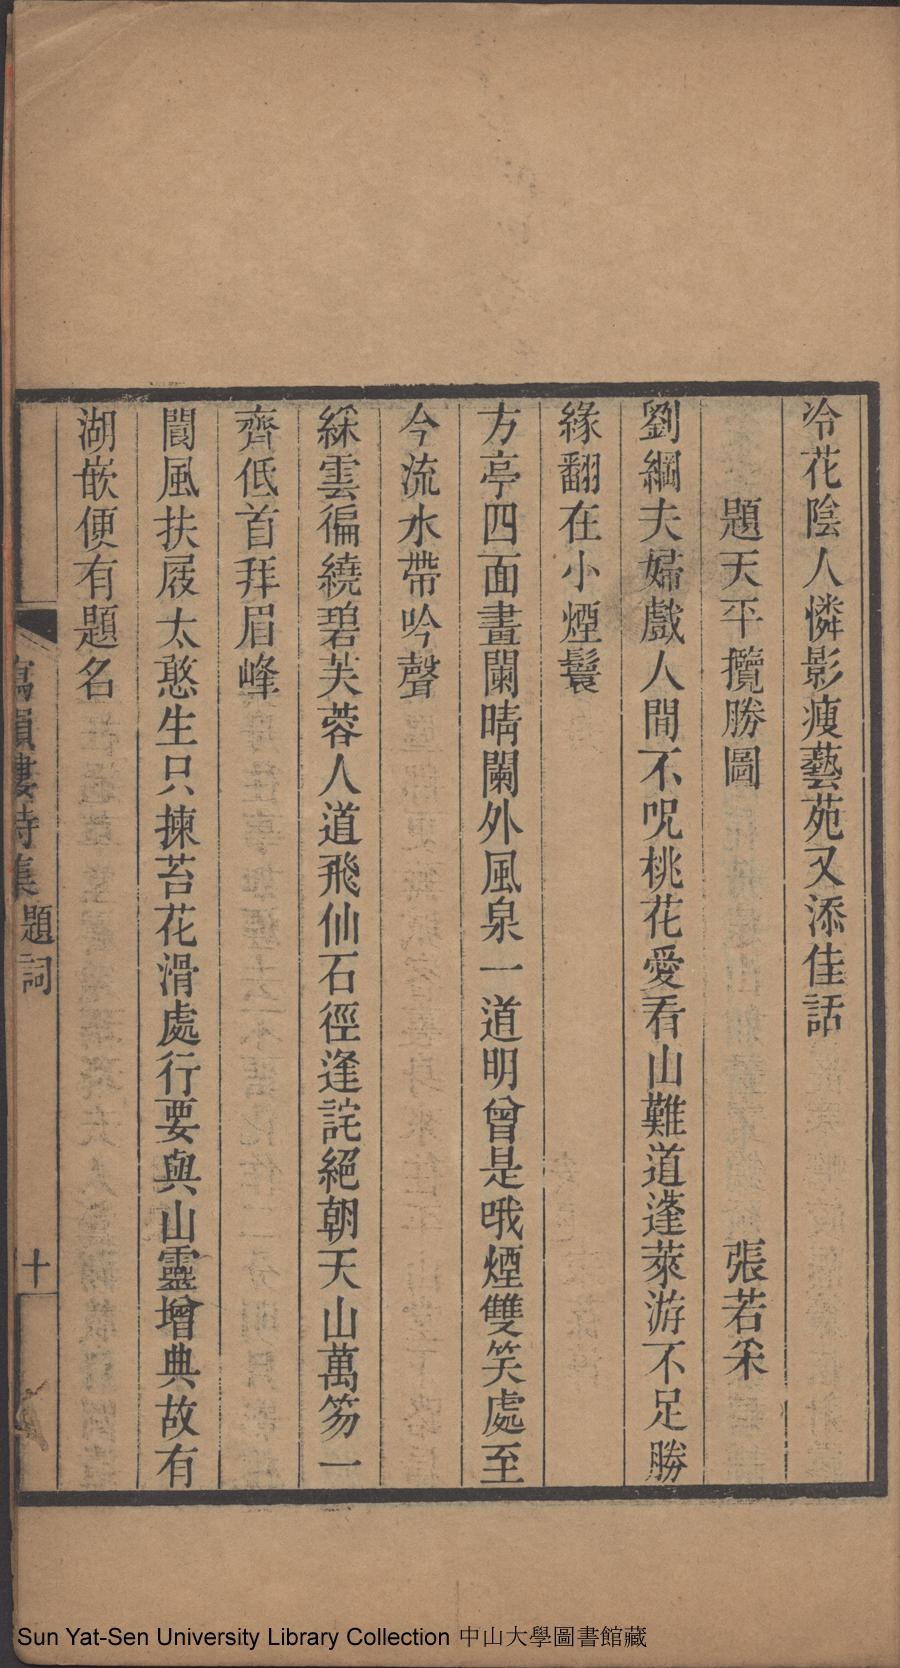 冷花陰人憐影瘦藝苑又添佳話
題天平攬勝圖　張若采
劉綱夫婦戲人間不呪桃花愛看山難道蓬萊游不足勝
緣翻在小煙鬟
方亭四面畫闌晴闌外風泉一道明曾是哦煙雙笑處至
今流水帶吟聲
綵雲徧繞碧芙蓉人道飛仙石徑逢詫絕朝天山萬笏一
齊低首拜眉峰
閬風扶屐太憨生只揀苔花滑處行要與山靈增典故有
湖嵌便有題名
寫韻樓詩集
題詞
十
Sun Yat-Sen University Library Collection 中山大學圖書館藏